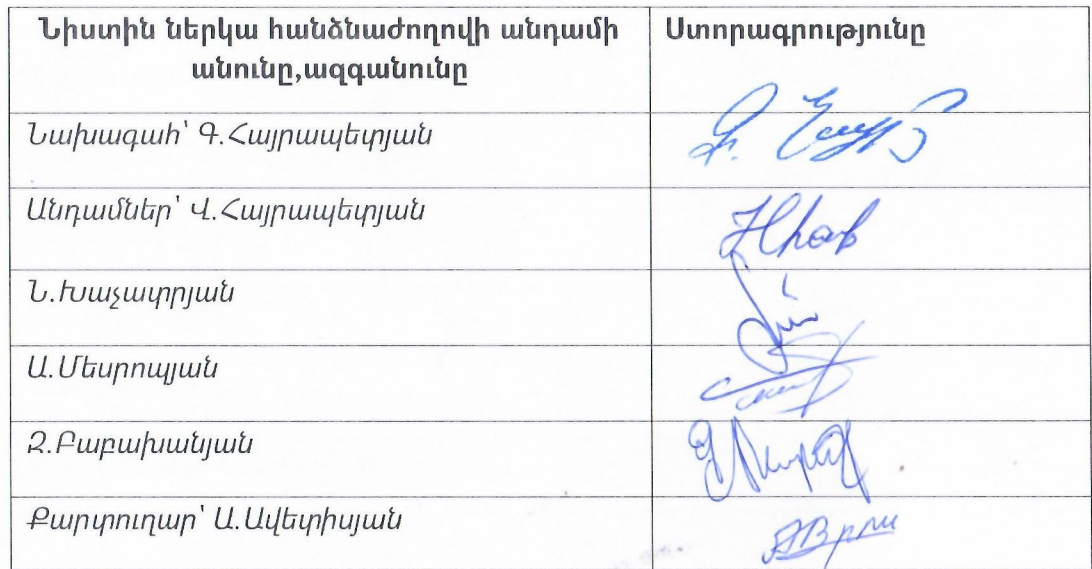 Նիստին ներկա հանձնաժողովի անդամի
անունը,ազգանունը
Ստորագրությունը
Նախագահ՝ Գ.Հայրապետյան
Անդամներ՝ Վ.Հայրապետյան
Ն.Խաչատրյան
Ա.Մեսրոպյան
Զ.Բաբախանյան
Քարտուղար՝ Ա.Ավետիսյան